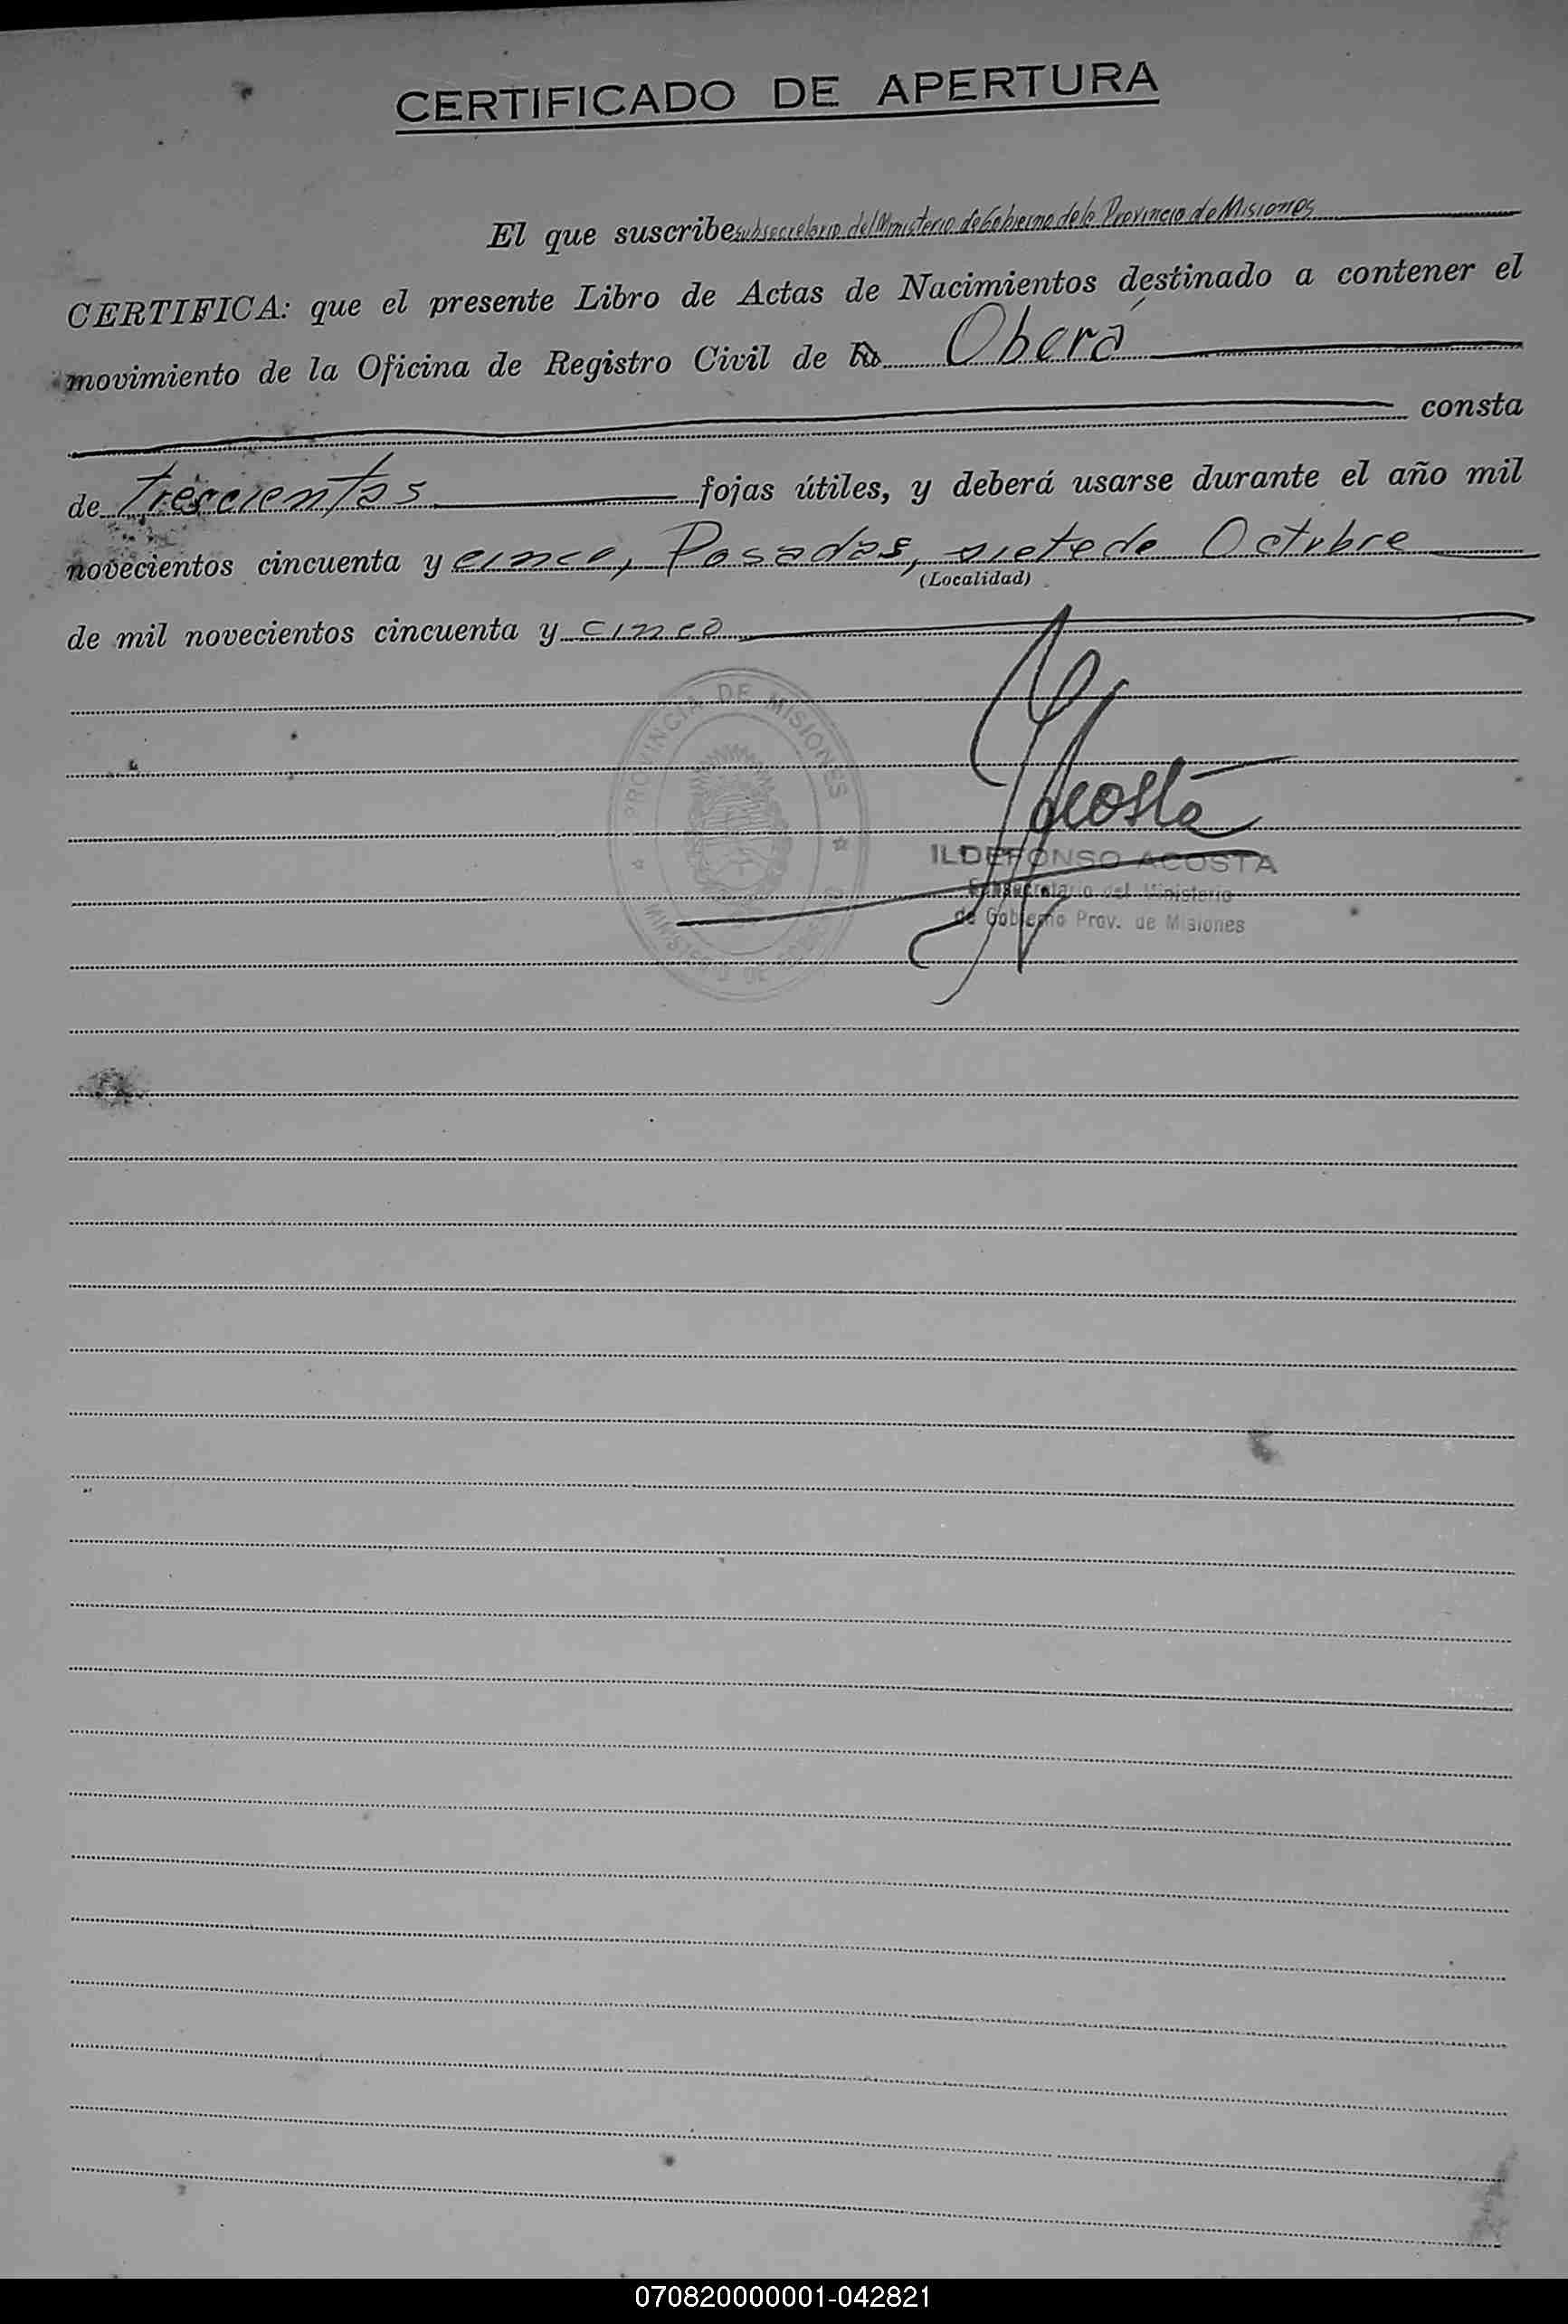 CERTIFICADO DE APERTURA
El que suscribe subsecretario del Ministerio de Gobierno de la Provincia de Misiones
CERTIFICA: que el presente Libro de Actas de Nacimientos destinado a contener el
movimiento de la Oficina de Registro Civil de Oberá
consta
de Trescientas fojas útiles, y deberá usarse durante el año mil
novecientos cincuenta y cinco, Posadas, siete de Octubre
(Localidad)
de mil novecientos cincuenta y cinco
PROVINCIA DE MISIONES
MINISTERIO DE GOBIERNO
Acosta
ILDEFONSO ACOSTA
Subsecretario del Ministerio
de Gobierno Prov. de Misiones
070820000001-042821